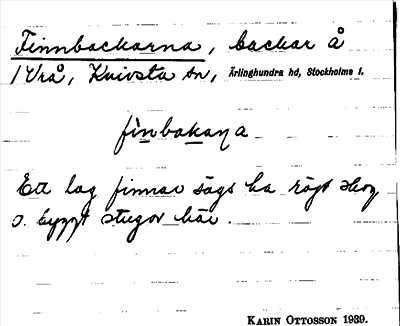 Finnbackarna, backar å
1 Vrå, Knivsta sn, Ärlinghundra hd, Stockholms l.
finbakaṇa
Ett lag finnar sägs ha röjt skog
o. byggt stugor här.
KARIN OTTOSSON 1939.